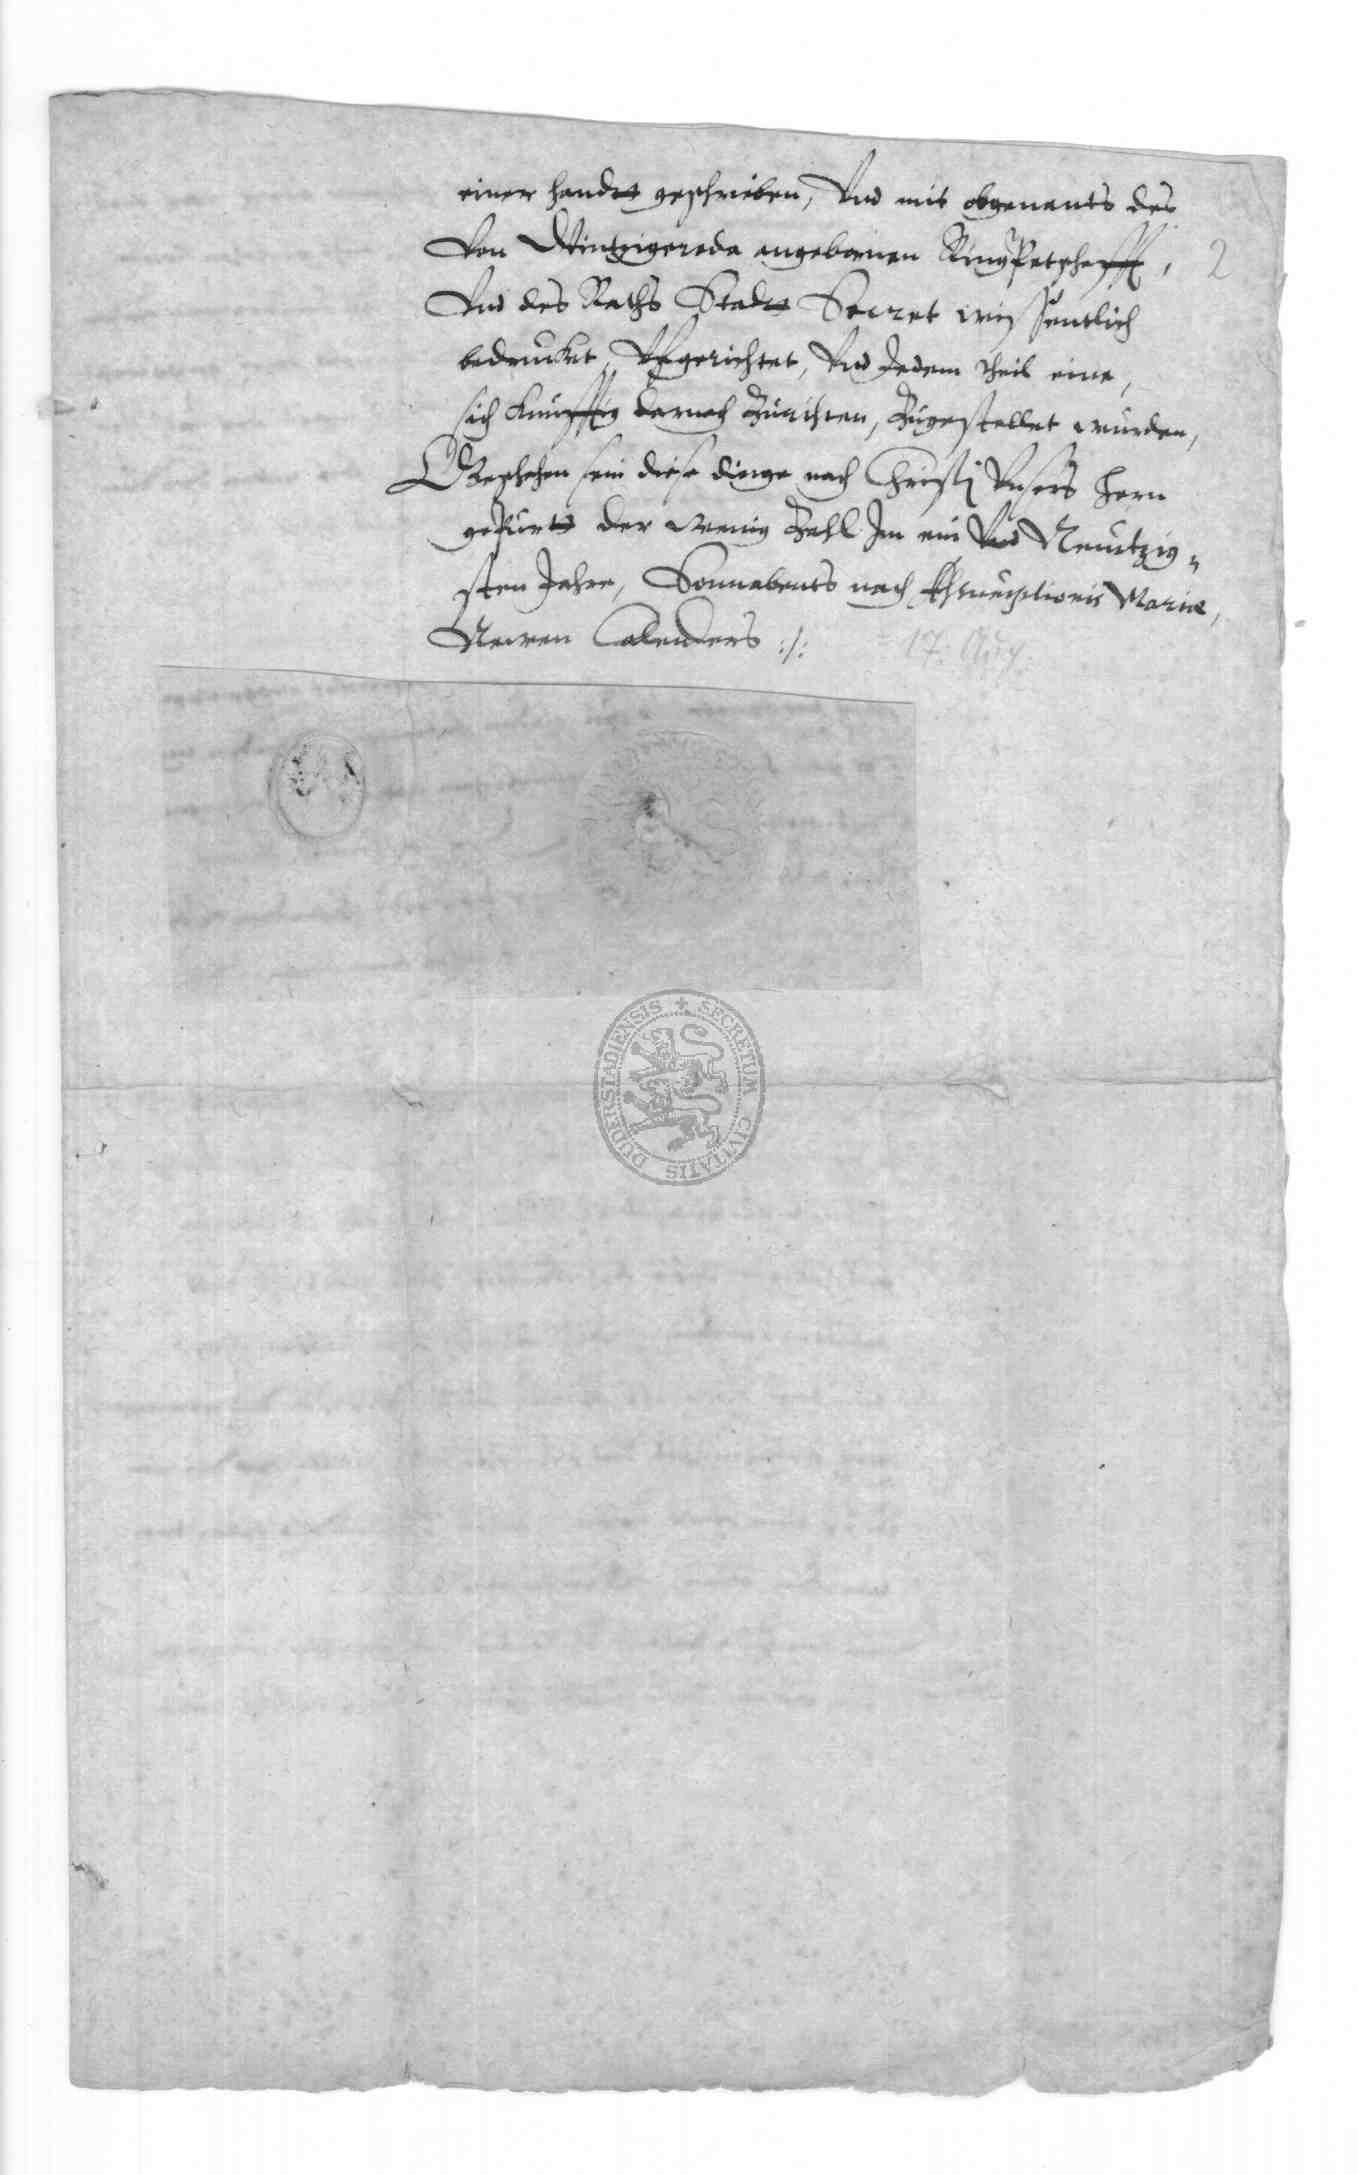 einer handt geschrieben, Vnd mit obgenants des
Von Wintzigeroda angebornen RingPetschafft,
2
Vnd des Raths Stadt Secret wissentlich
bedrucket, Vfgerichtet, Vnd Jedem theil eine,
sich kunfftig darnach Zurichten, Zugestellet wurden,
Geschehen sein diese dinge nach Christi Vnsers Hern
geburt der wenig Zahl Im ein Vnd Neuntzig-
sten Jahre, Sonnabents nach Assumptionis Mariae,
Newen Calenders :/:
= 17. Aug.
DUDERSTADIENSIS + SECRETUM CIVITATIS